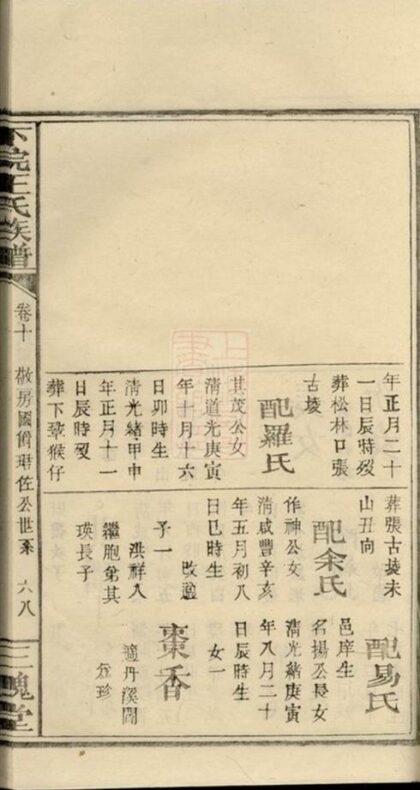 年正月二十
一日辰時歿
葬松林口張
古堎
配羅氏
其茂公女
清道光庚寅
年十月十六
日卯時生
清光緒甲申
年正月十一
日辰時歿
葬下章猴仔
葬張古堎未
山丑向
配余氏
作神公女
清咸豐辛亥
年五月初八
日巳時生
子一 改適
洪祥入
繼胞弟其
瑛長子
配易氏
邑庠生
名揚公長女
清光緒庚寅
年八月二十
日辰時生
女一
棗香
適丹溪
珍
下院王氏族譜
卷十 敬房國爵珺佐公世系 六八
三槐堂